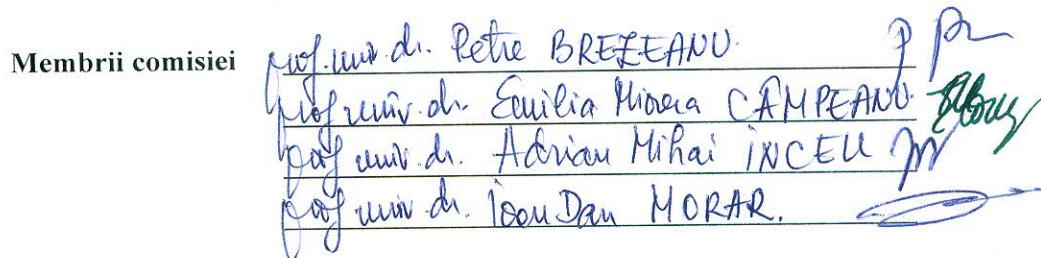 Membrii comisiei prof. univ. dr. Petre BREZEANU.
prof. univ. dr. Emilia CÂMPEANU.
prof. univ. dr. Adrian Mihai INCEU
prof. univ. dr. Ioan Dan MORAR.